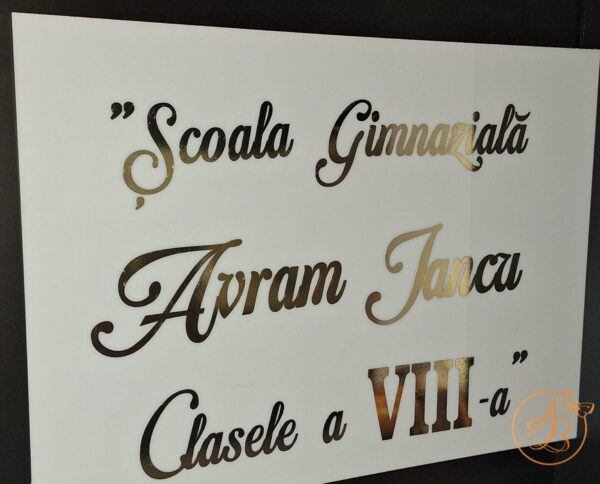 ”Școala Gimnazială
Avram Iancu
Clasele a VIII-a”